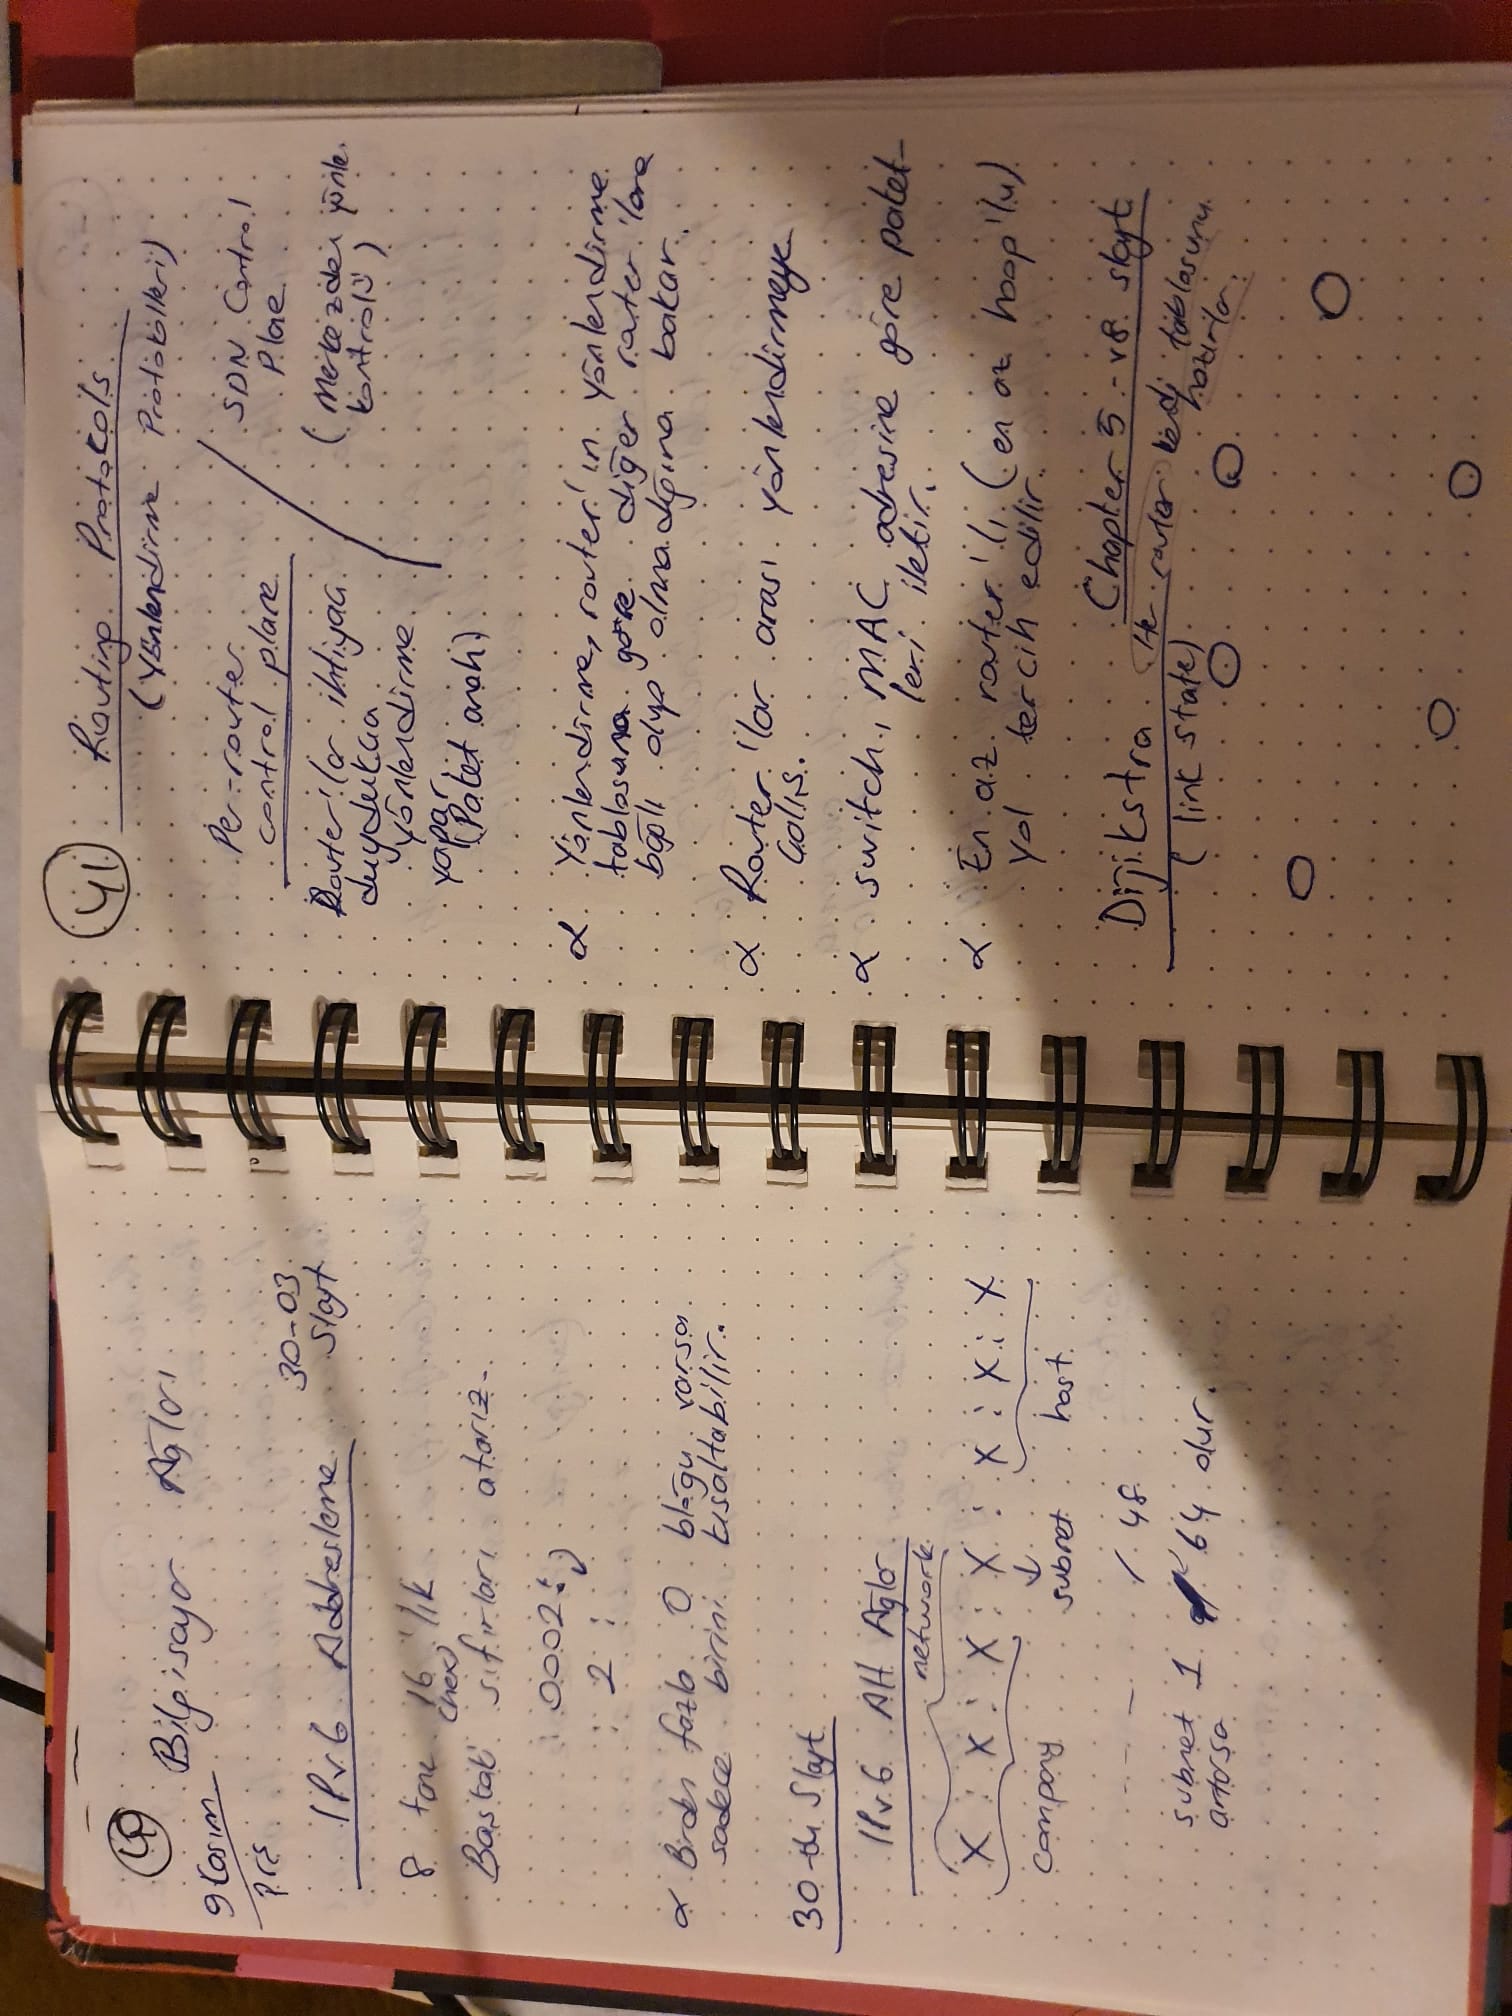 40
Bilgisayar Ağları
9 Kasım
prş
30-03
Slayt
IPv6 Addresleme
8 tane 16'lık
(hex)
Baştaki sıfırları atarız.
: 0002 :
: 2 :
α Birden fazla 0 bloğu varsa
sadece birini kısaltabilir.
30-04 Slayt
IPv6 Alt Ağlar
network
X : X : X : X : X : X : X
company subnet host
---- / 48
subnet 1 64 olur.
artarsa
41
Routing Protokols
(Yönlendirme Protokolleri)
Per-router
control plane
Router'lar ihtiyacı
duydukça
yönlendirme
yapar.
(Paket anah)
SDN Control
Plane
(Merkezden yönle.
kontrolü)
α Yönlendirme, router'ın yönlendirme
tablosuna göre diğer router'lara
bağlı olup olmadığına bakar.
α Router'lar arası yönlendirmeye
çalış.
α switch, MAC adresine göre paket-
leri iletir.
α En az router'lı (en az hoop'lu)
yol tercih edilir.
Chapter 5 - v8 slayt
Dijikstra
(link state)
Her router kendi tablosunu
hazırlar.